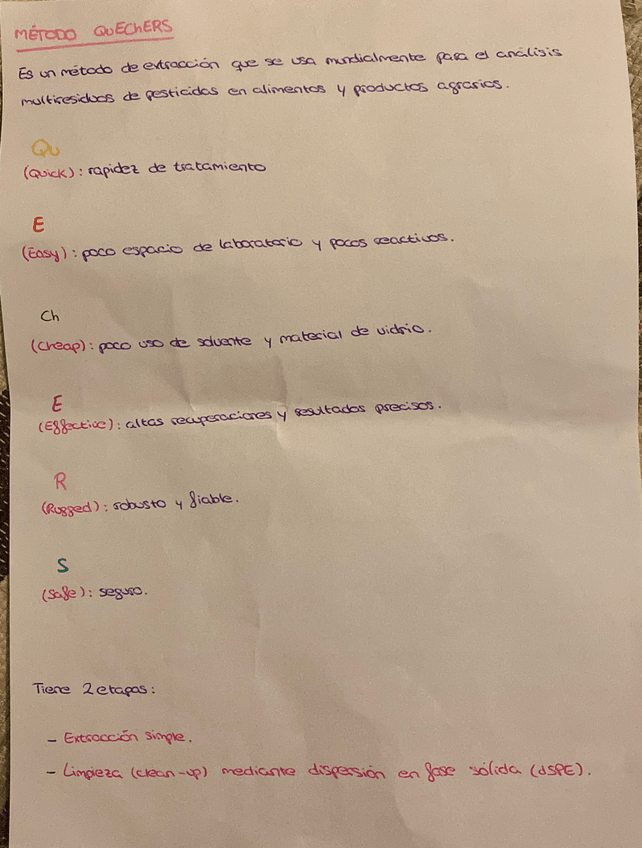 MÉTODO QUEChERS
Es un método de extracción que se usa mundialmente para el análisis
multiresiduos de pesticidas en alimentos y productos agrarios.
Qu
(Quick): rapidez de tratamiento
E
(Easy): poco espacio de laboratorio y pocos reactivos.
Ch
(Cheap): poco uso de solvente y material de vidrio.
E
(Effective): altas recuperaciones y resultados precisos.
R
(Rugged): robusto y fiable.
S
(Safe): seguro.
Tiene 2 etapas:
- Extracción simple.
- Limpieza (clean-up) mediante dispersión en fase sólida (dSPE).